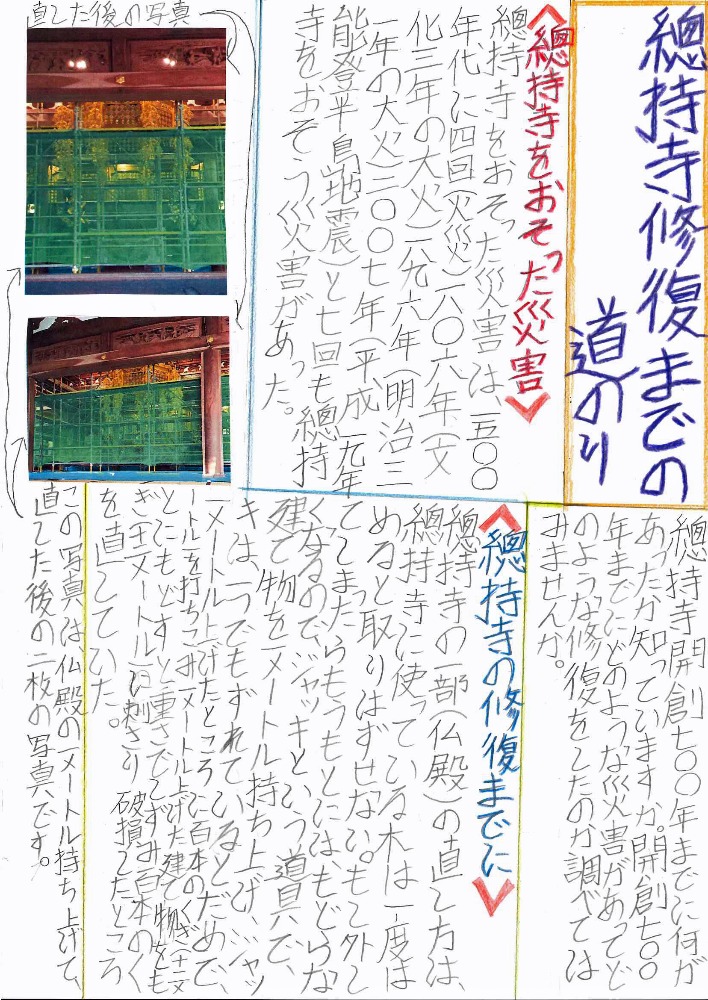 總持寺修復までの
道のり
總持寺開創七〇〇年までに何が
あったか知っていますか。開創七〇〇
年までにどのような災害があってど
のような修復をしたのか調べては
みませんか。
〈總持寺をおそった災害〉
總持寺をおそった災害は、一五〇〇
年代に四回(火災)一八〇六年(文
化三年の大火)一八九六年(明治三
一年の大火)二〇〇七年(平成一九年
能登半島地震)と七回も總持
寺をおそう災害があった。
〈總持寺の修復までに〉
總持寺の一部(仏殿)の直し方は、
總持寺に使っている木は一度は
めると取りはずせない。もし外し
てしまったらもうもとにはもどらな
くなるので、ジャッキという道具で、
建て物を一メートル持ち上げ、ジャッ
キは、一つでもずれているとだめで、
一メートル上げたところに百本のくぎ(十二メ
ートル)を打ちこみ一メートル上げた建て物をも
とにもどすと重さでしずみ百本のく
ぎ(十二メートル)に刺さり破損したところ
を直していた。
直した後の写真
この写真は、仏殿の一メートル持ち上げて、
直した後の二枚の写真です。